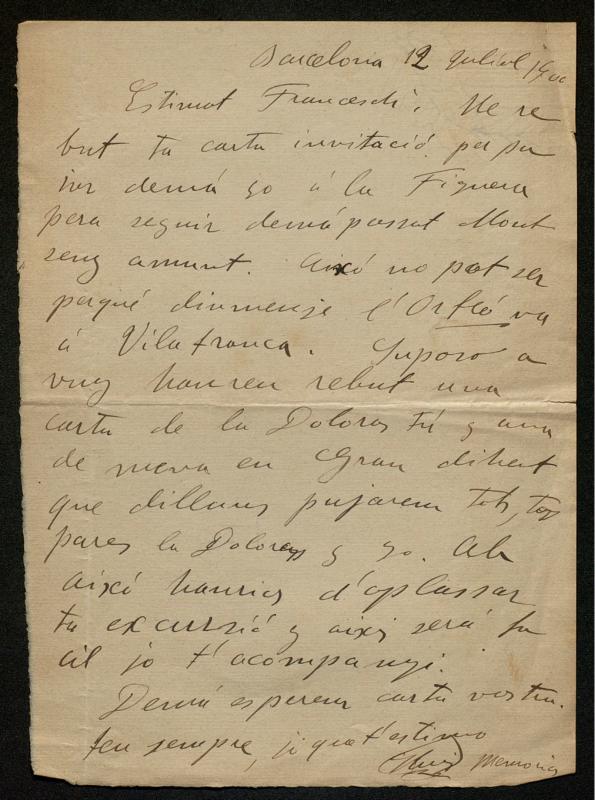 Barcelona 12 Juliol 1900
Estimat Francesch: He re
but ta carta invitació per pu
jar demá jo á la Figuera
pera seguir demá passat Mont
seny amunt. Aixó no pot ser
perqué diumenje l'Orfeó va
á Vilafranca. Suposo a
vuy haureu rebut una
carta de la Dolores tú y una
de meva en Gran dihent
que dilluns pujarem tots, tos
pares la Dolores y jo. Ab
aixó haurias d'aplassar
ta excursió y aixis será fa
cil jo t'acompanyi.
Demá esperem carta vostra.
teu sempre, jo que t'estimo
Lluis Memorias